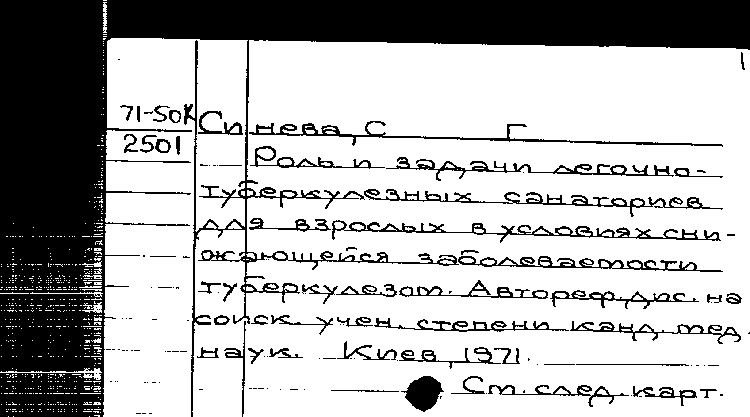 71-50к Синева, С Г
2501
Роль и задачи легочно-
туберкулезных санаториев
для взрослых в условиях сни-
жающейся заболеваемости
туберкулезом. Автореф. дис. на
соиск. учен. степени канд. мед.
наук. Киев, 1971.
См. след. карт.